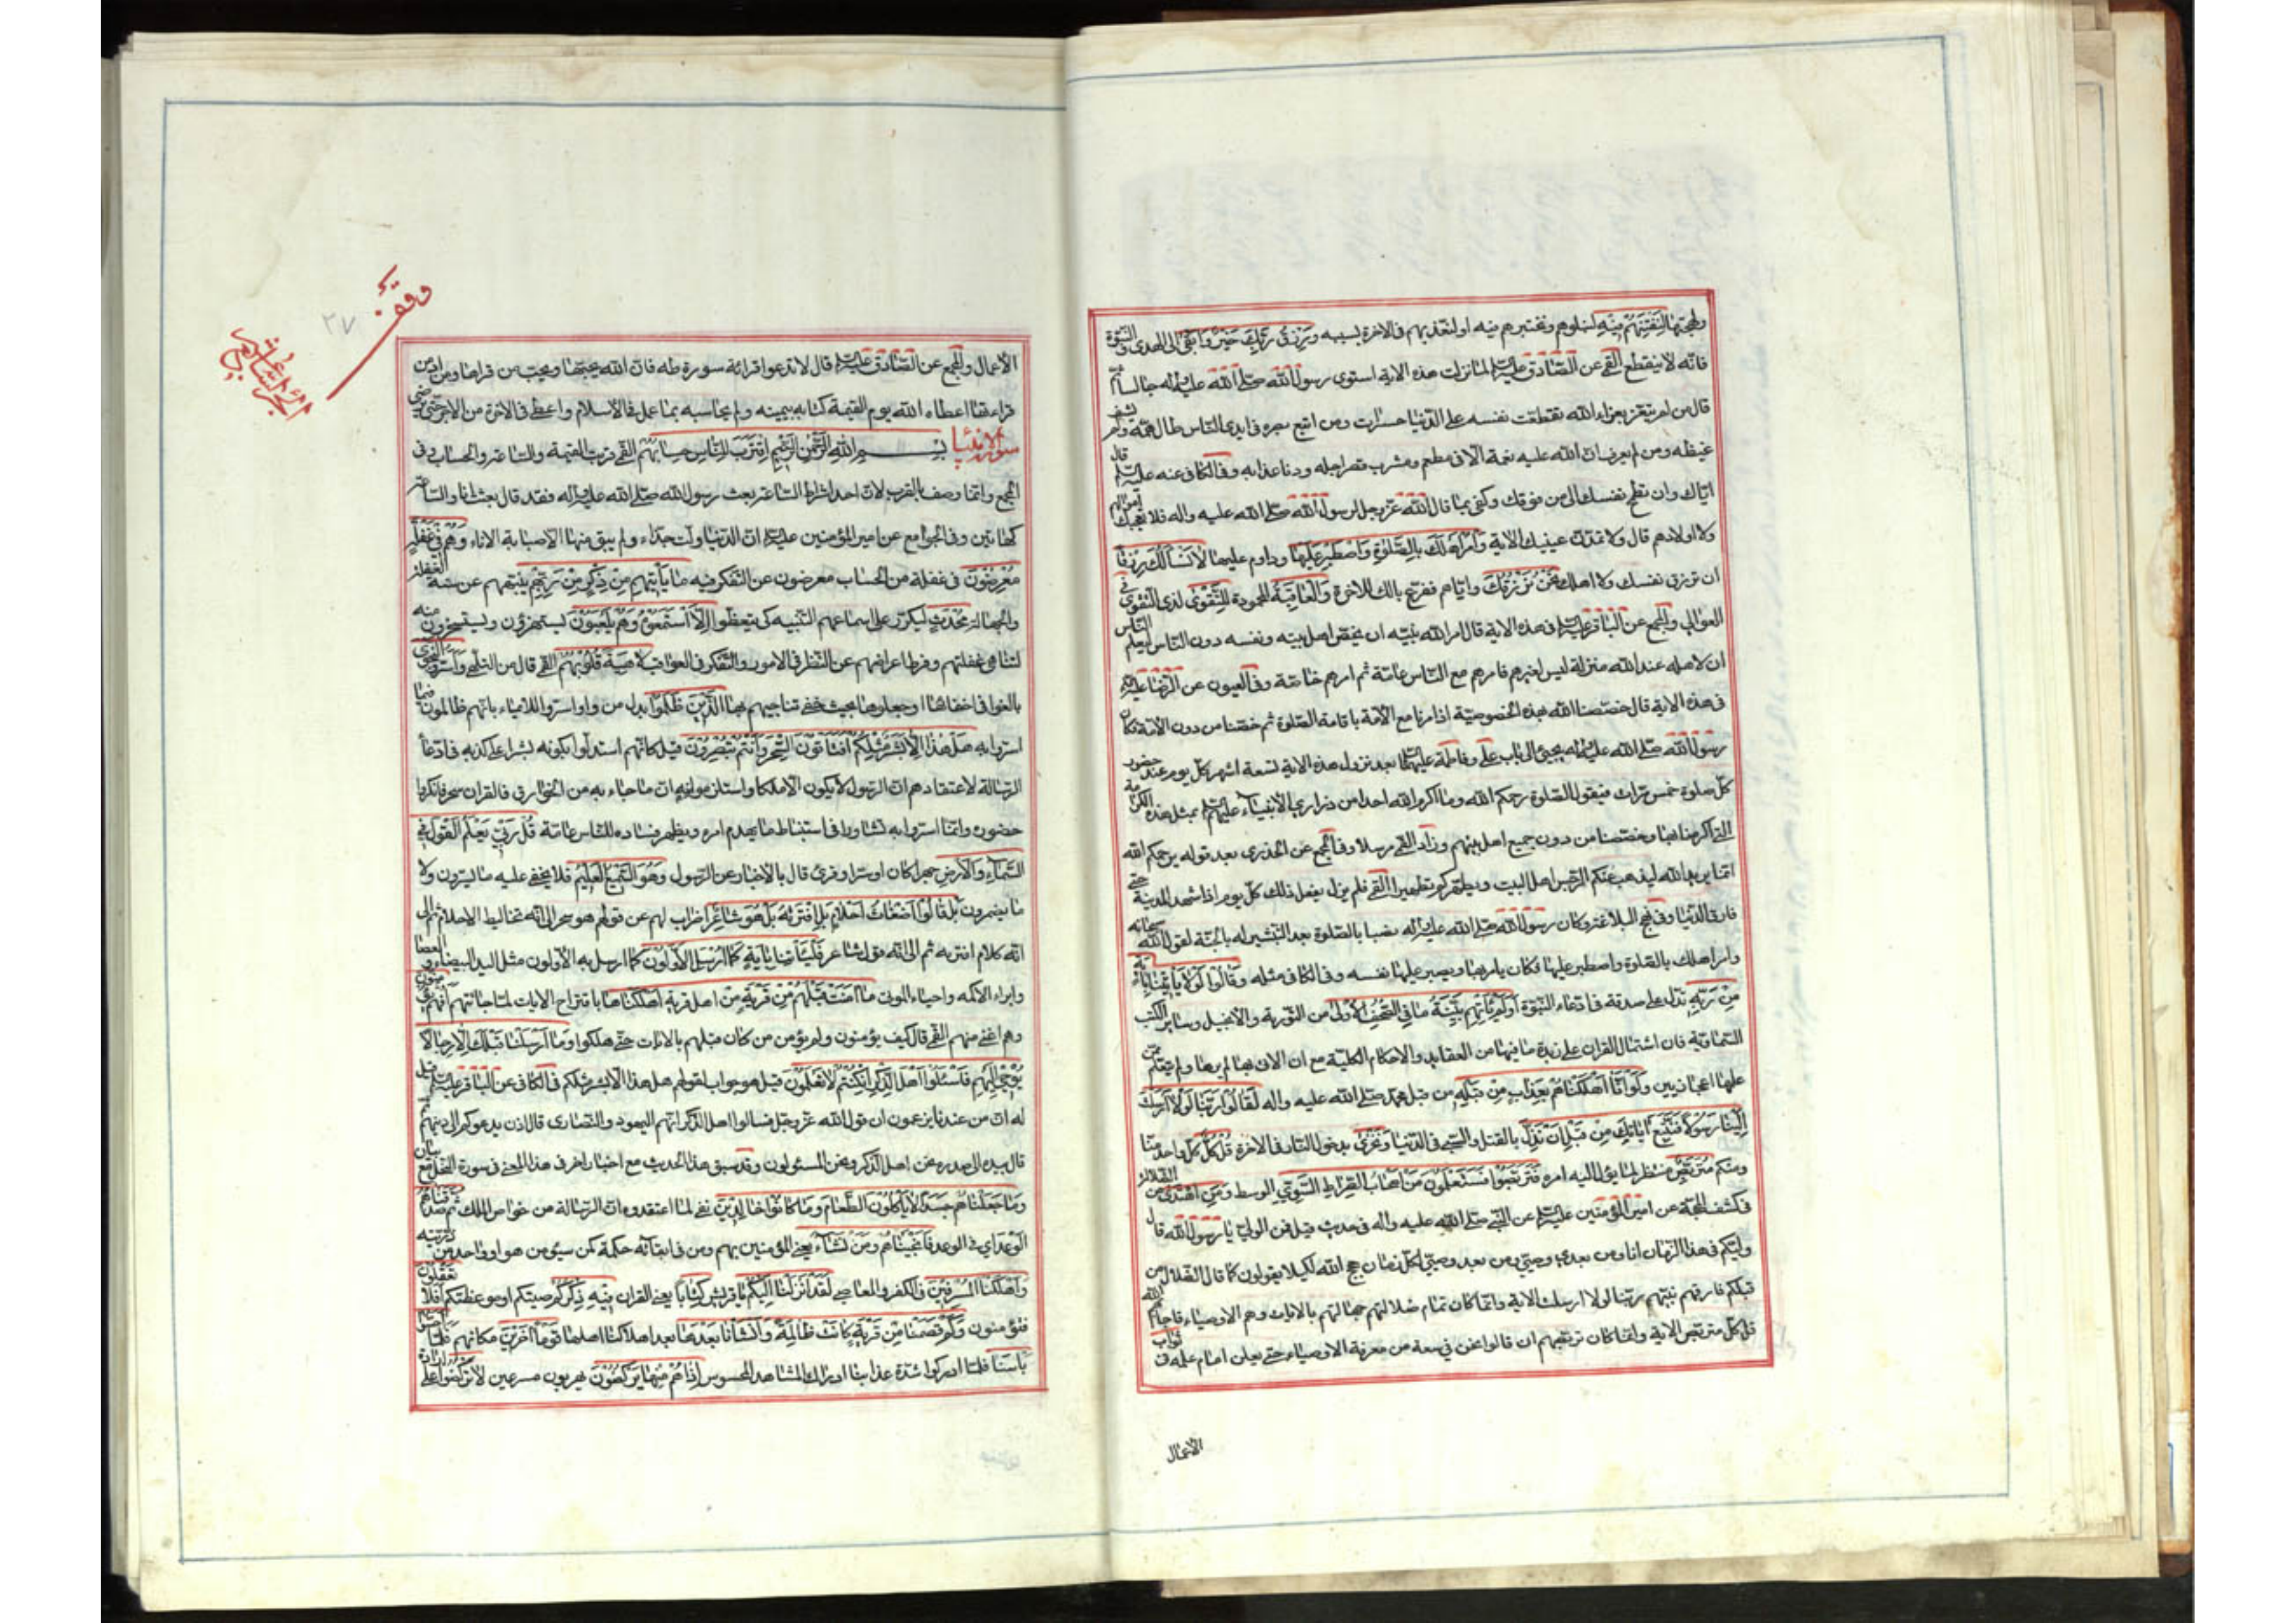 وبهجتها لنفتنهم فيه لنبلوهم ونختبرهم فيه او لنعذبهم فى الاخرة بسببه ورزق ربك خير وابقى الهدى والنبوة
فانه لا ينقطع القمى عن الصادق عليه السلم لما نزلت هذه الاية استوى رسول الله صلى الله عليه واله جالسا ثم
قال من لم يتعز بعزاء الله تقطعت نفسه على الدنيا حسرات ومن اتبع بصره فى ايدى الناس طال همه ولم يشف
غيظه ومن لم يعرف ان الله عليه نعمة الا فى مطعم ومشرب قصر اجله ودنا عذابه وفى الكافى عنه عليه السلم قال
اياك وان تطمح نفسك الى من فوقك وكفى بما قال الله عز وجل لرسول الله صلى الله عليه واله فلا تعجبك اموالهم
ولا اولادهم قال ولا تمدن عينيك الاية وَأْمُرْ أَهْلَكَ بِالصَّلٰوةِ وَاصْطَبِرْ عَلَيْهَا وداوم عليها لا نَسْأَلُكَ رِزْقًا
ان ترزق نفسك ولا اهلك نَحْنُ نَرْزُقُكَ واياهم ففرغ بالك للاخرة وَالْعَاقِبَةُ المحمودة لِلتَّقْوٰى لذى التقوى فى
العوالى والمجمع عن الباقر عليه السلم فى هذه الاية قال امر الله نبيه ان يخص اهل بيته ونفسه دون الناس ليعلم الناس
ان لاهله عند الله منزلة ليس لغيرهم فامرهم مع الناس عامة ثم امرهم خاصة وفى العيون عن الرضا عليه السلم
فى هذه الاية قال خصصنا الله بهذه الخصوصية اذ امرنا مع الامة باقامة الصلوة ثم خصنا من دون الامة فكان
رسول الله صلى الله عليه واله يجيئ الى باب على وفاطمة عليهما السلم بعد نزول هذه الاية تسعة اشهر كل يوم عند حضور
كل صلوة خمس مرات فيقول الصلوة رحمكم الله وما اكرم الله احدا من ذرارى الانبياء عليهم السلم بمثل هذه الكرامة
التى اكرمنا بها وخصصنا من دون جميع اهل بيتهم وزاد القمى مرسلا وفى المجمع عن الخدرى بعد قوله يرحمكم الله
انما يريد الله ليذهب عنكم الرجس اهل البيت ويطهركم تطهيرا القمى فلم يزل يفعل ذلك كل يوم اذا شهد المدينة حتى
فارق الدنيا وفى نهج البلاغة وكان رسول الله صلى الله عليه واله نصبا بالصلوة بعد التبشير له بالجنة لقول الله سبحانه
وامر اهلك بالصلوة واصطبر عليها فكان يامر بها ويصبر عليها نفسه وفى الكافى مثله وَقَالُوا لَوْلا يَأْتِينَا بِآيَةٍ
مِنْ رَبِّهِ تدل على صدقه فى ادعاء النبوة أَوَلَمْ تَأْتِهِمْ بَيِّنَةُ مَا فِى الصُّحُفِ الْأُولىٰ من التورية والانجيل وساير الكتب
السماوية فان اشتمال القران على زبدة ما فيها من العقايد والاحكام الكلية مع ان الاتى بها لم يرها ولم يتعلم ممن
علمها اعجاز بين وَلَوْ أَنَّا أَهْلَكْنَاهُمْ بِعَذَابٍ مِنْ قَبْلِهِ من قبل محمد صلى الله عليه واله لَقَالُوا رَبَّنَا لَوْلا أَرْسَلْتَ
إِلَيْنَا رَسُولًا فَنَتَّبِعَ آيَاتِكَ مِنْ قَبْلِ أَنْ نَذِلَّ بالقتل والسبى فى الدنيا وَنَخْزٰى بدخول النار فى الاخرة قُلْ كُلٌّ كل واحد منا
ومنكم مُتَرَبِّصٌ منتظر لما يؤل اليه امره فَتَرَبَّصُوا فَسَتَعْلَمُونَ مَنْ أَصْحَابُ الصِّرَاطِ السَّوِيِّ الوسط وَمَنِ اهْتَدٰى من الضلالة
فى كشف المحجة عن امير المؤمنين عليه السلم عن النبى صلى الله عليه واله فى حديث قيل فمن الولى يا رسول الله قال
وليكم فى هذا الزمان انا ومن بعدى وصيى ومن بعد وصيى لكل زمان حجج الله لكيلا يقولون كما قال الضلال من
قبلكم فارقهم نبيهم ربنا لولا ارسلت الاية وانما كان تمام ضلالتهم جهالتهم بالايات وهم الاوصياء فاجابهم الله
قل كل متربص الاية وانما كان تربصهم ان قالوا نحن فى سعة من معرفة الاوصياء حتى يعلن امام علمه فى ثواب
الاعمال
وقف
٢٧
الاعمال والمجمع عن الصادق عليه السلم قال لا تدعوا قرائة سورة طه فان الله يحبها ويحب من قراها ومن ادمن
قراءتها اعطاه الله يوم القيمة كتابه بيمينه ولم يحاسبه بما عمل فى الاسلام واعطى فى الاخرة من الاجر حتى يرضى
سورة الانبياء بسم الله الرحمن الرحيم اقْتَرَبَ لِلنَّاسِ حِسَابُهُمْ القمى قربت القيمة والساعة والحساب وفى
المجمع وانما وصف بالقرب لان احد اشراط الساعة بعث رسول الله صلى الله عليه واله فقد قال بعثت انا والساعة
كهاتين وفى الجوامع عن امير المؤمنين عليه السلم ان الدنيا ولت حذاء ولم يبق منها الا صبابة كصبابة الاناء وَهُمْ فِى غَفْلَةٍ
مُعْرِضُونَ فى غفلة من الحساب معرضون عن التفكر فيه مَا يَأْتِيهِمْ مِنْ ذِكْرٍ مِنْ رَبِّهِمْ ينبههم عن سنة الغفلة
والجهالة مُحْدَثٍ ليكرر على اسماعهم التنبيه كى يتعظوا إِلَّا اسْتَمَعُوهُ وَهُمْ يَلْعَبُونَ يستهزؤن ويستسخرون منه
لتناهى غفلتهم وفرط اعراضهم عن النظر فى الامور والتفكر فى العواقب لاهِيَةً قُلُوبُهُمْ القمى قال من التلهى وَأَسَرُّوا النَّجْوَى
بالغوا فى اخفائها او جعلوها بحيث خفى تناجيهم بها الَّذِينَ ظَلَمُوا بدل من واو اسروا للايماء بانهم ظالمون فيما
اسروا به هَلْ هٰذَا إِلَّا بَشَرٌ مِثْلُكُمْ أَفَتَأْتُونَ السِّحْرَ وَأَنْتُمْ تُبْصِرُونَ قيل كانهم استدلوا بكونه بشرا على كذبه فى ادعاء
الرسالة لاعتقادهم ان الرسول لا يكون الا ملكا واستلزموا منه ان ما جاء به من الخوارق كالقران سحر فانكروا
حضوره وانما اسروا به تشاورا فى استنباط ما يهدم امره ويظهر فساده للناس عامة قُلْ رَبِّي يَعْلَمُ الْقَوْلَ فِى
السَّمَاءِ وَالْأَرْضِ جهرا كان او سرا وقرئ قال بالاخبار عن الرسول وَهُوَ السَّمِيعُ الْعَلِيمُ فلا يخفى عليه ما يسرون ولا
ما يضمرون بَلْ قَالُوا أَضْغَاثُ أَحْلامٍ بَلِ افْتَرٰيهُ بَلْ هُوَ شَاعِرٌ اضراب لهم عن قولهم هو سحر الى انه تخاليط الاحلام ثم الى
انه كلام افتريه ثم الى انه قول شاعر فَلْيَأْتِنَا بِآيَةٍ كَمَا أُرْسِلَ الْأَوَّلُونَ كما ارسل به الاولون مثل اليد البيضاء والعصا
وابراء الاكمه واحياء الموتى مَا آمَنَتْ قَبْلَهُمْ مِنْ قَرْيَةٍ من اهل قرية أَهْلَكْنَاهَا باقتراح الايات لما جاءتهم أَفَهُمْ يُؤْمِنُونَ
وهم اعتى منهم القمى قال كيف يؤمنون ولم يؤمن من كان قبلهم بالايات حتى هلكوا وَمَا أَرْسَلْنَا قَبْلَكَ إِلَّا رِجَالًا
يُوحٰى إِلَيْهِمْ فَاسْئَلُوا أَهْلَ الذِّكْرِ إِنْ كُنْتُمْ لا تَعْلَمُونَ قيل هو جواب لقولهم هل هذا الا بشر مثلكم فى الكافى عن الباقر عليه السلم قيل
له ان من عندنا يزعمون ان قول الله عز وجل فسالوا اهل الذكر انهم اليهود والنصارى قال اذن يدعوكم الى دينهم ثم
قال بيده الى صدره نحن اهل الذكر ونحن المسئولون وقد سبق هذا الحديث مع اخبار اخر فى هذا المعنى فى سورة النحل مع بيان
وَمَا جَعَلْنَاهُمْ جَسَدًا لا يَأْكُلُونَ الطَّعَامَ وَمَا كَانُوا خَالِدِينَ نفى لما اعتقدوه ان الرسالة من خواص الملك ثُمَّ صَدَقْنَاهُمُ
الْوَعْدَ اى فى الوعد فَأَنْجَيْنَاهُمْ وَمَنْ نَشَاءُ يعنى المؤمنين بهم ومن فى ابقائه حكمة كمن سيؤمن هو او واحد من ذريته
وَأَهْلَكْنَا الْمُسْرِفِينَ فى الكفر والمعاصى لَقَدْ أَنْزَلْنَا إِلَيْكُمْ يا قريش كِتَابًا يعنى القران فِيهِ ذِكْرُكُمْ صيتكم او موعظتكم أَفَلا تَعْقِلُونَ
فتؤمنون وَكَمْ قَصَمْنَا مِنْ قَرْيَةٍ كَانَتْ ظَالِمَةً وَأَنْشَأْنَا بَعْدَهَا بعد اهلاكنا اهلها قَوْمًا آخَرِينَ مكانهم فَلَمَّا أَحَسُّوا
بَأْسَنَا فلما ادركوا شدة عذابنا ادراك المشاهد المحسوس إِذَا هُمْ مِنْهَا يَرْكُضُونَ يهربون مسرعين لا تَرْكُضُوا على ارادة